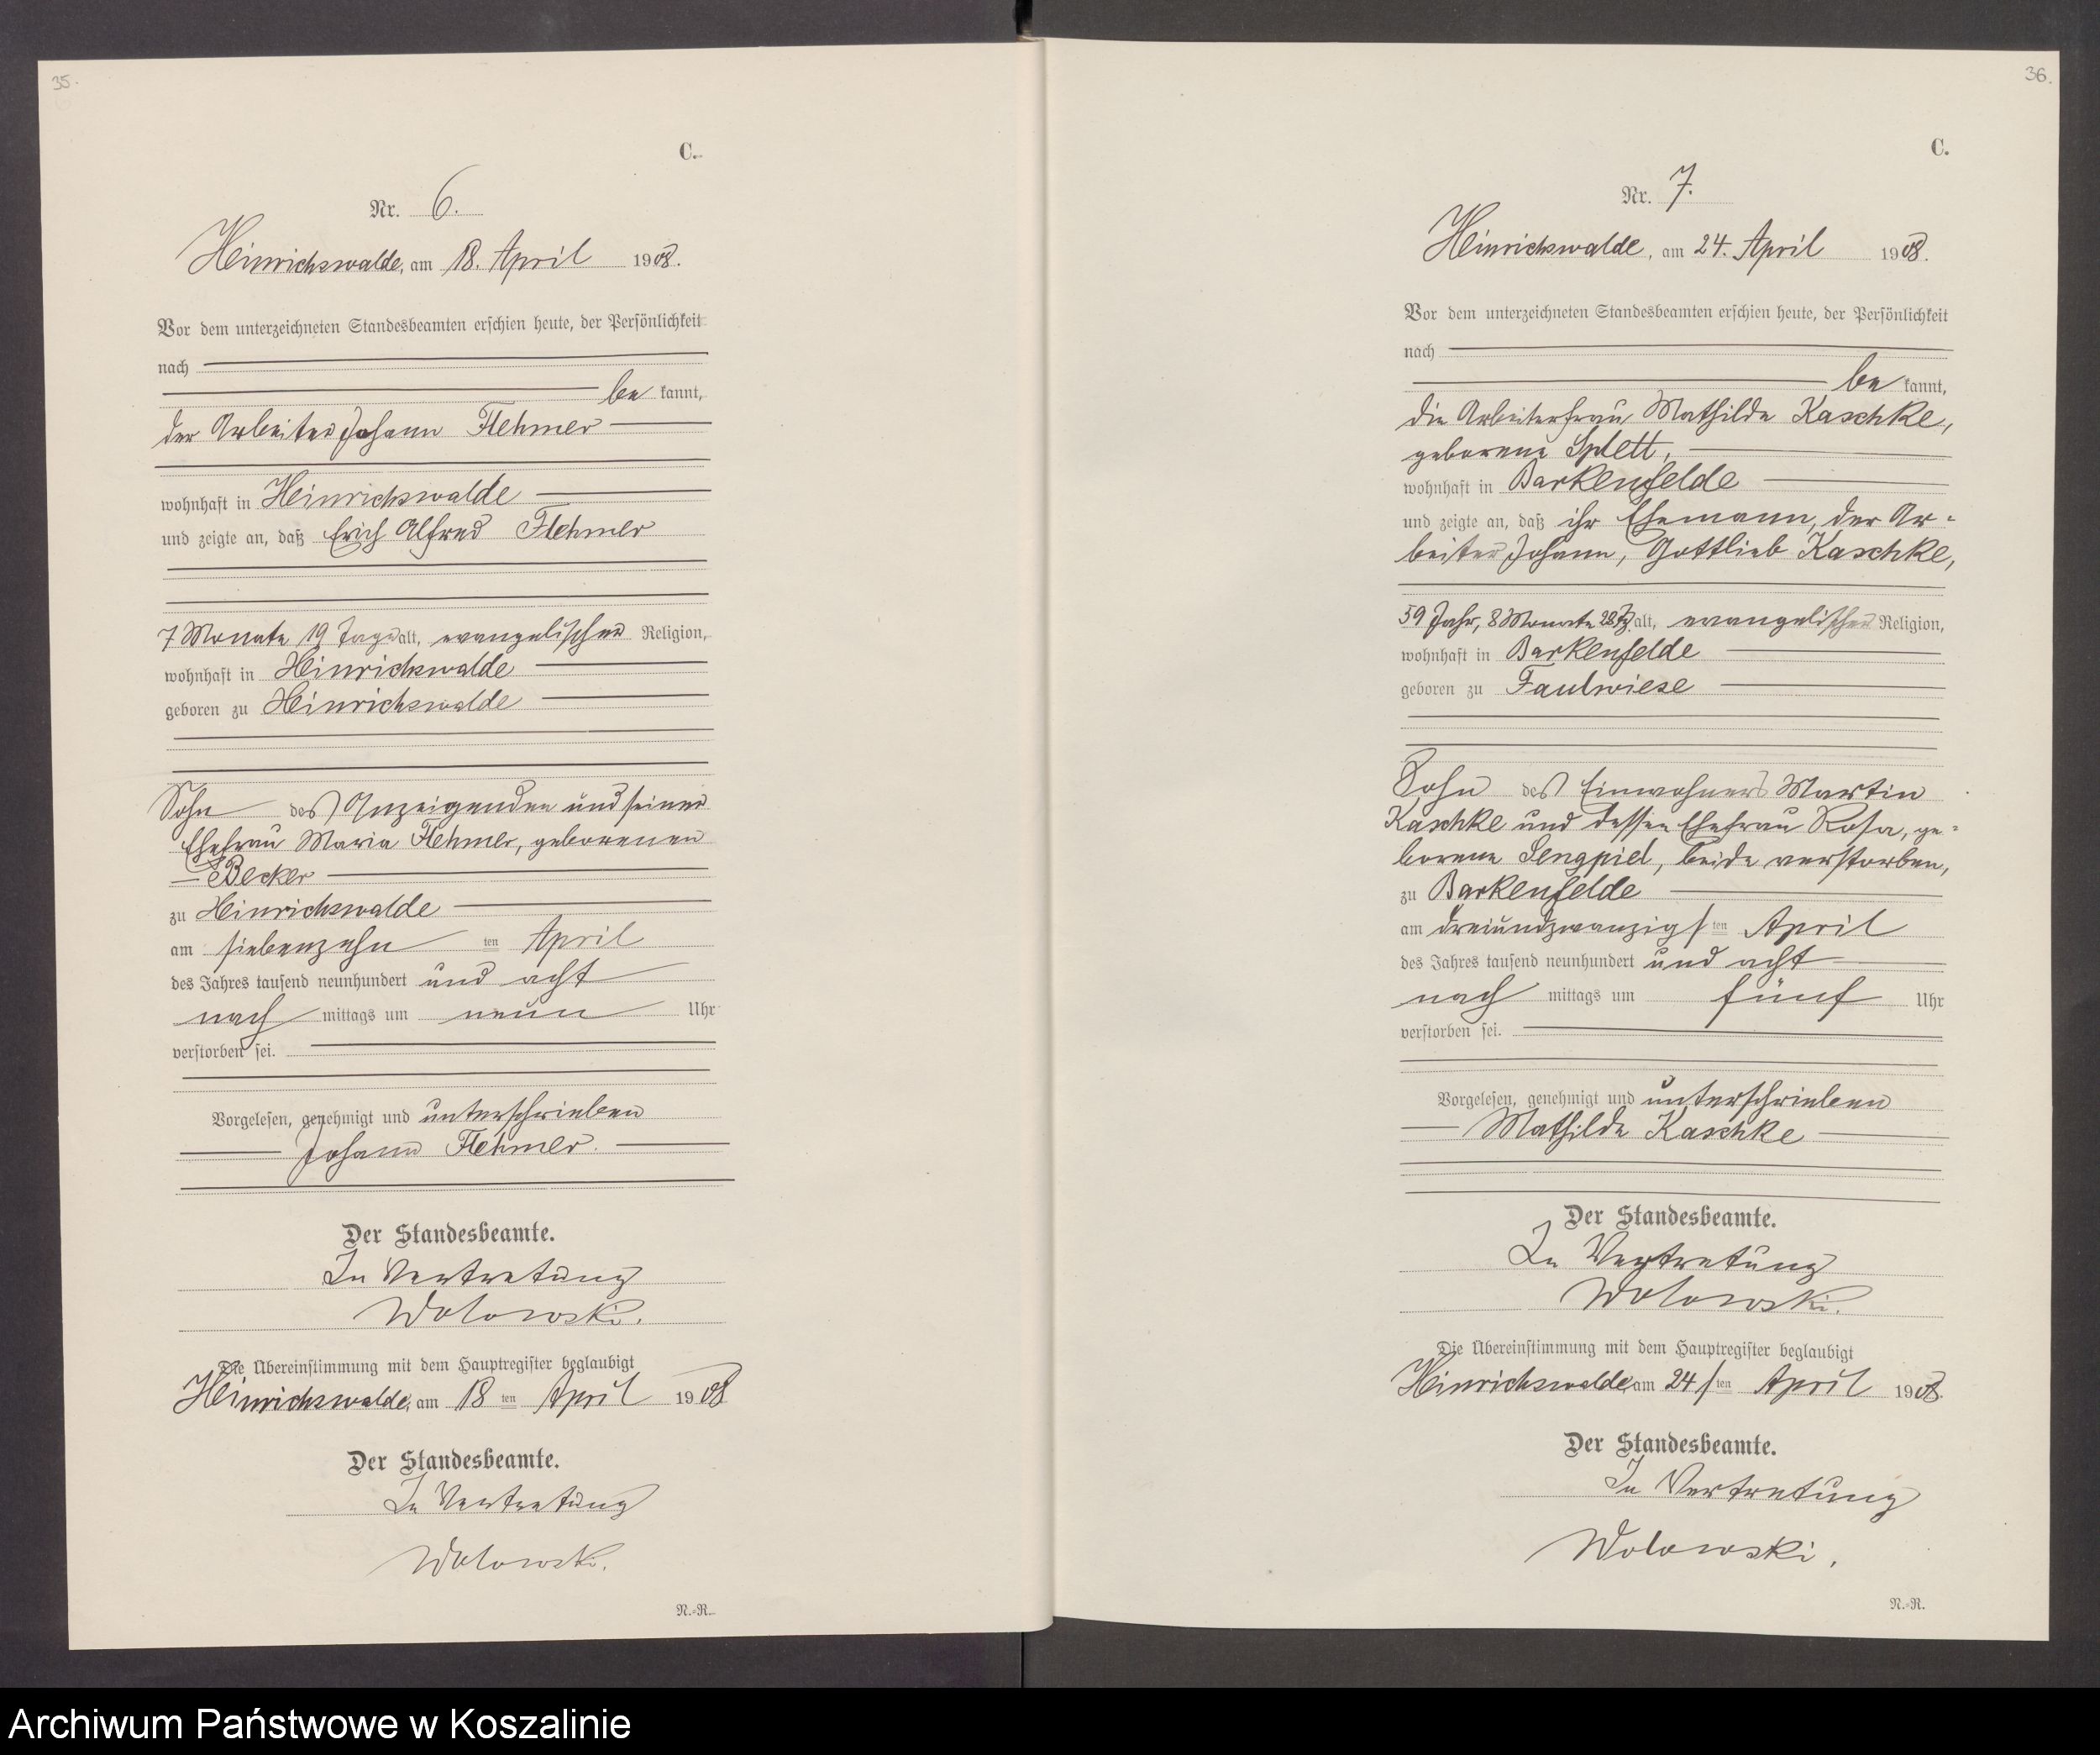 35.
C.
Nr. 6.
Heinrichswalde, am 18. April 1908.
Vor dem unterzeichneten Standesbeamten erschien heute, der Persönlichkeit
nach
be kannt,
der Arbeiter Johann Flehmer
wohnhaft in Heinrichswalde
und zeigte an, daß Erich Alfred Flehmer
7 Monate 19 Tage alt, evangelischer Religion,
wohnhaft in Heinrichswalde
geboren zu Heinrichswalde
Sohn des Anzeigenden und seiner
Ehefrau Maria Flehmer, geborenen
Becker
zu Heinrichswalde
am siebenzehn ten April
des Jahres tausend neunhundert und acht
nach mittags um neun Uhr
verstorben sei.
Vorgelesen, genehmigt und unterschrieben
Johann Flehmer.
Der Standesbeamte.
In Vertretung
Wolowski.
Die Übereinstimmung mit dem Hauptregister beglaubigt
Heinrichswalde, am 18 ten April 1908
Der Standesbeamte.
In Vertretung
Wolowski.
N.=R.
36.
C.
Nr. 7.
Heinrichswalde, am 24. April 1908.
Vor dem unterzeichneten Standesbeamten erschien heute, der Persönlichkeit
nach
be kannt,
die Arbeiterfrau Mathilde Kaschke,
geborene Splett,
wohnhaft in Barkenfelde
und zeigte an, daß ihr Ehemann, der Ar=
beiter Johann, Gottlieb Kaschke,
59 Jahr, 8 Monate 28 Tg. alt, evangelischer Religion,
wohnhaft in Barkenfelde
geboren zu Faulwiese
Sohn des Einwohners Martin
Kaschke und dessen Ehefrau Rosa, ge=
borene Sengpiel, beide verstorben,
zu Barkenfelde
am dreiundzwanzigs ten April
des Jahres tausend neunhundert und acht
nach mittags um fünf Uhr
verstorben sei.
Vorgelesen, genehmigt und unterschrieben
Mathilde Kaschke
Der Standesbeamte.
In Vertretung
Wolowski.
Die Übereinstimmung mit dem Hauptregister beglaubigt
Heinrichswalde, am 24s ten April 1908.
Der Standesbeamte.
In Vertretung
Wolowski.
N.=R.
Archiwum Państwowe w Koszalinie